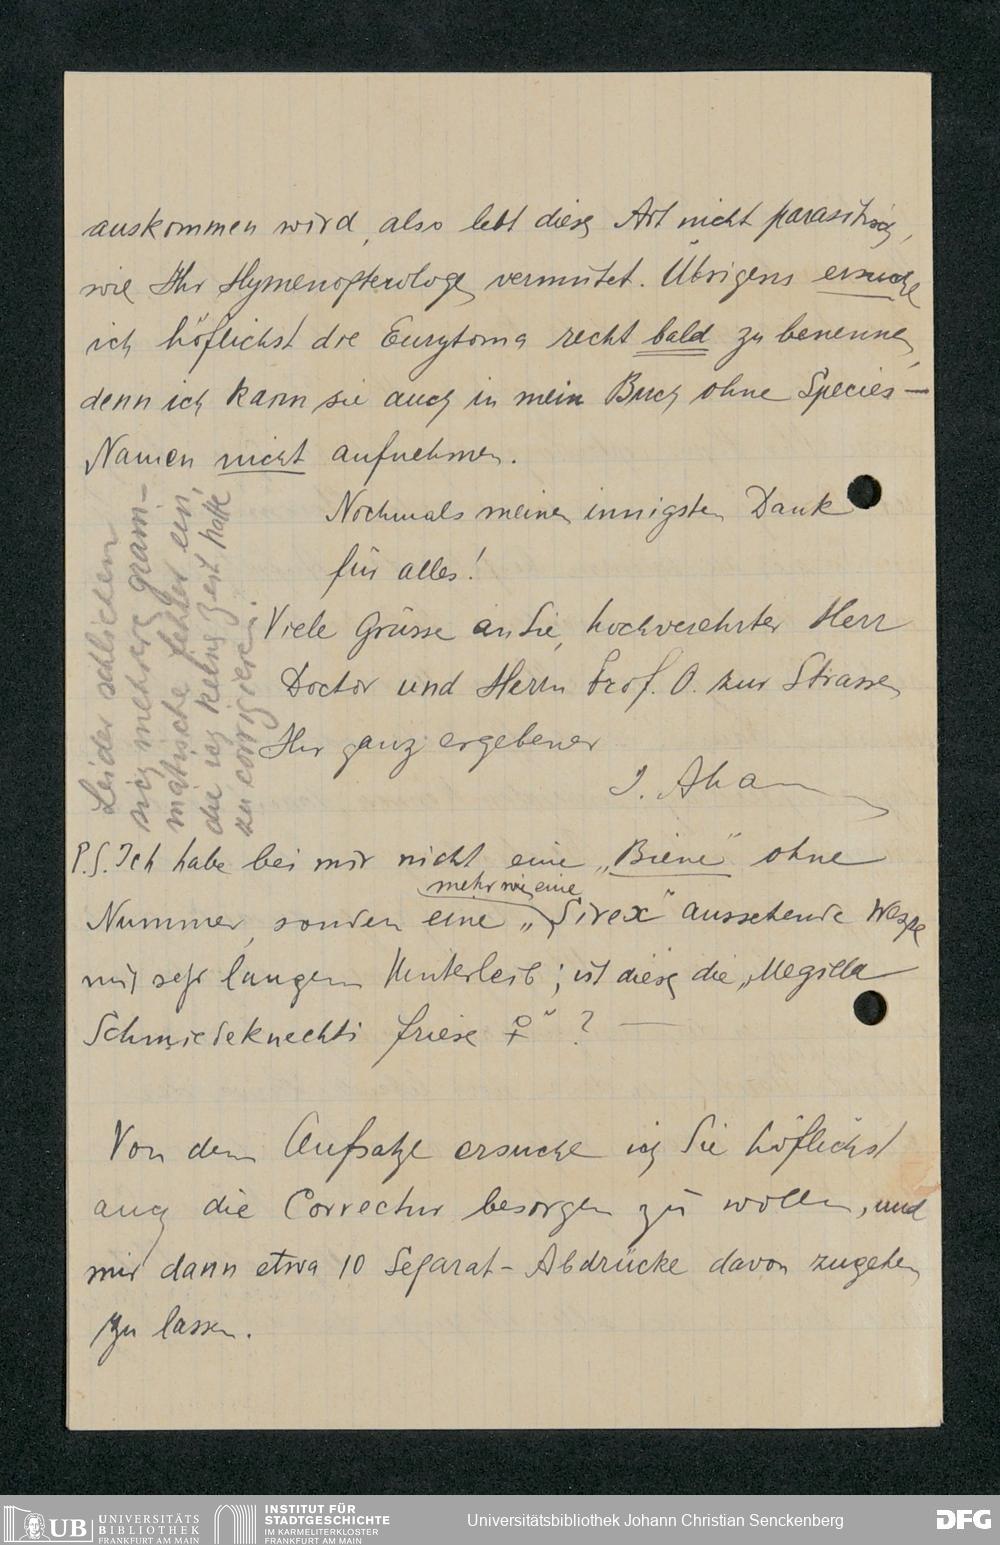 auskommen wird, also lebt diese Art nicht parasitisch,
wie Ihr Hymenopterologe vermutet. Übrigens ersuche
ich höflichst die Eurytoma recht bald zu benennen,
denn ich kann sie auch in mein Buch ohne Species-
Namen nicht aufnehmen.
Nochmals meinen innigsten Dank
für alles!
Viele Grüsse an Sie, hochverehrter Herr
Doctor und Herrn Prof. O. zur Strassen
Ihr ganz ergebener
J. Aha
Leider schlichen
sich mehrere gram-
matische Fehler ein,
die ich keine Zeit hatte
zu corrigieren.
P.S. Ich habe bei mir nicht eine „Biene“ ohne
mehr wie eine
Nummer, sondern eine „Sirex“ aussehende Wespe
mit sehr langem Hinterleib; ist diese die „Megilla
Schmiedeknechti Friese ♀“ ? —
Von dem Aufsatze ersuche ich Sie höflichst
auch die Correctur besorgen zu wollen, und
mir dann etwa 10 Separat-Abdrücke davon zugehen
zu lassen.
UB UNIVERSITÄTS
BIBLIOTHEK
FRANKFURT AM MAIN
INSTITUT FÜR
STADTGESCHICHTE
IM KARMELITERKLOSTER
FRANKFURT AM MAIN
Universitätsbibliothek Johann Christian Senckenberg
DFG